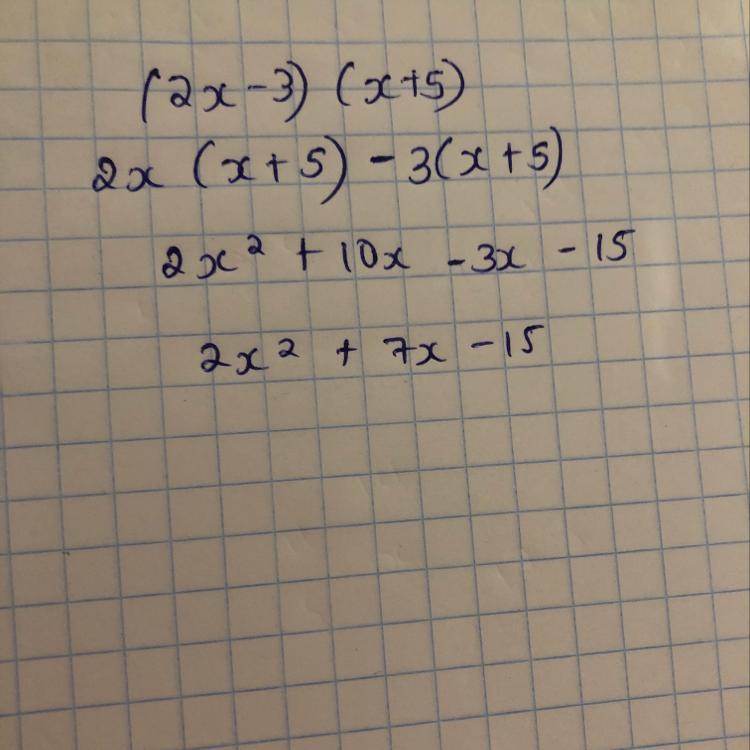 (2x-3) (x+5)
2x (x+5) -3(x+5)
2x² + 10x -3x -15
2x² + 7x -15